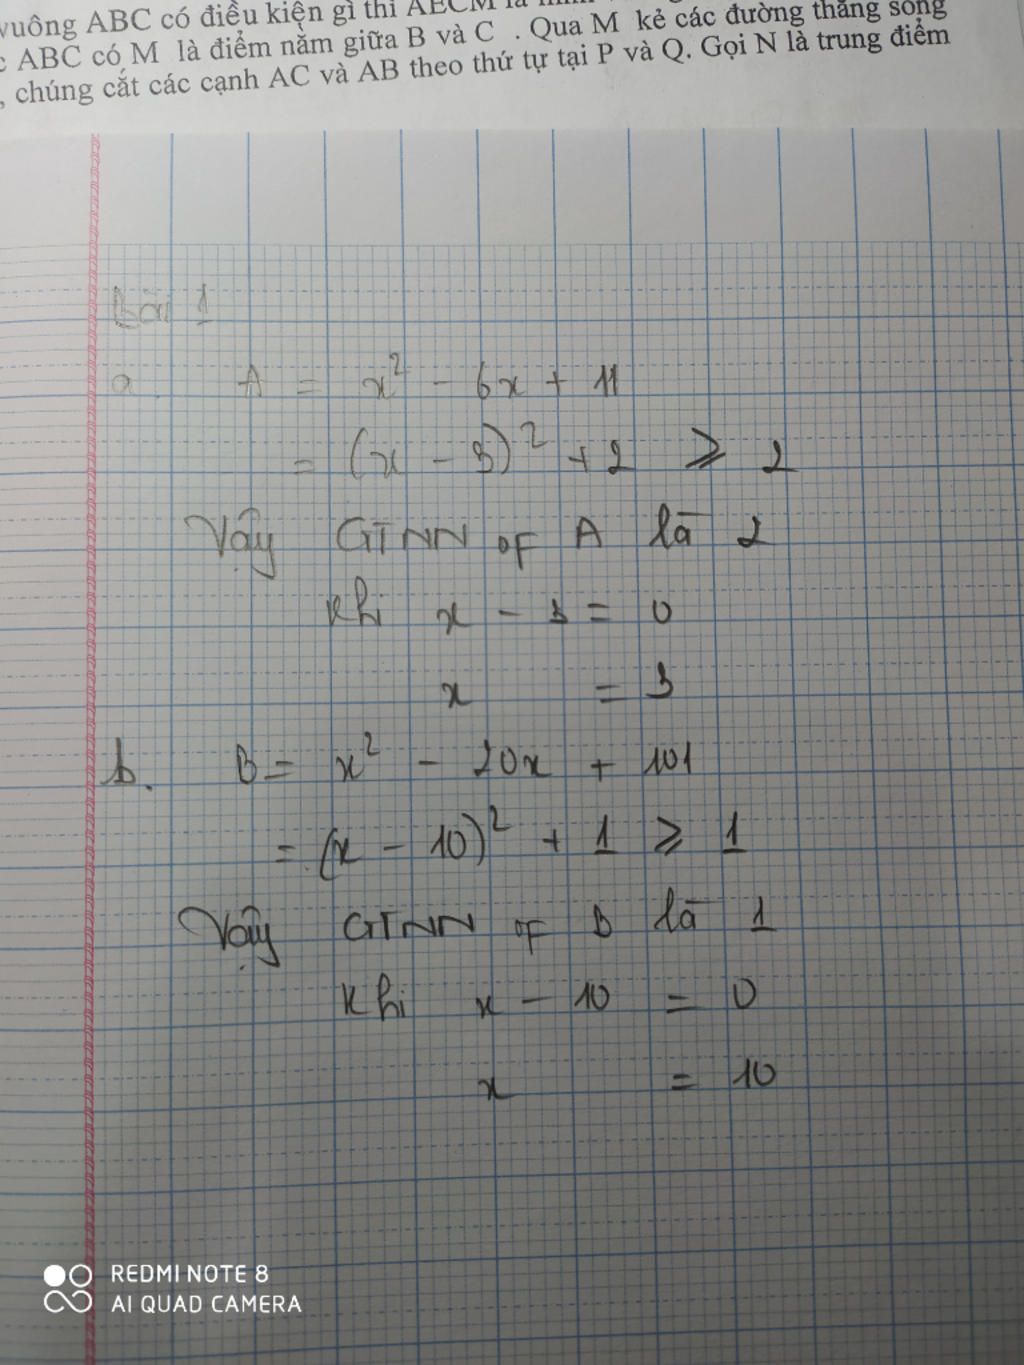 vuông ABC có điều kiện gì thì AECM là
ABC có M là điểm nằm giữa B và C . Qua M kẻ các đường thẳng song
, chúng cắt các cạnh AC và AB theo thứ tự tại P và Q. Gọi N là trung điểm
Bài 1
a. A = x² - 6x + 11
= (x - 3)² + 2 ⩾ 2
Vậy GTNN OF A là 2
Khi x - 3 = 0
x = 3
b. B = x² - 20x + 101
= (x - 10)² + 1 ⩾ 1
Vậy GTNN OF B là 1
Khi x - 10 = 0
x = 10
REDMI NOTE 8
AI QUAD CAMERA